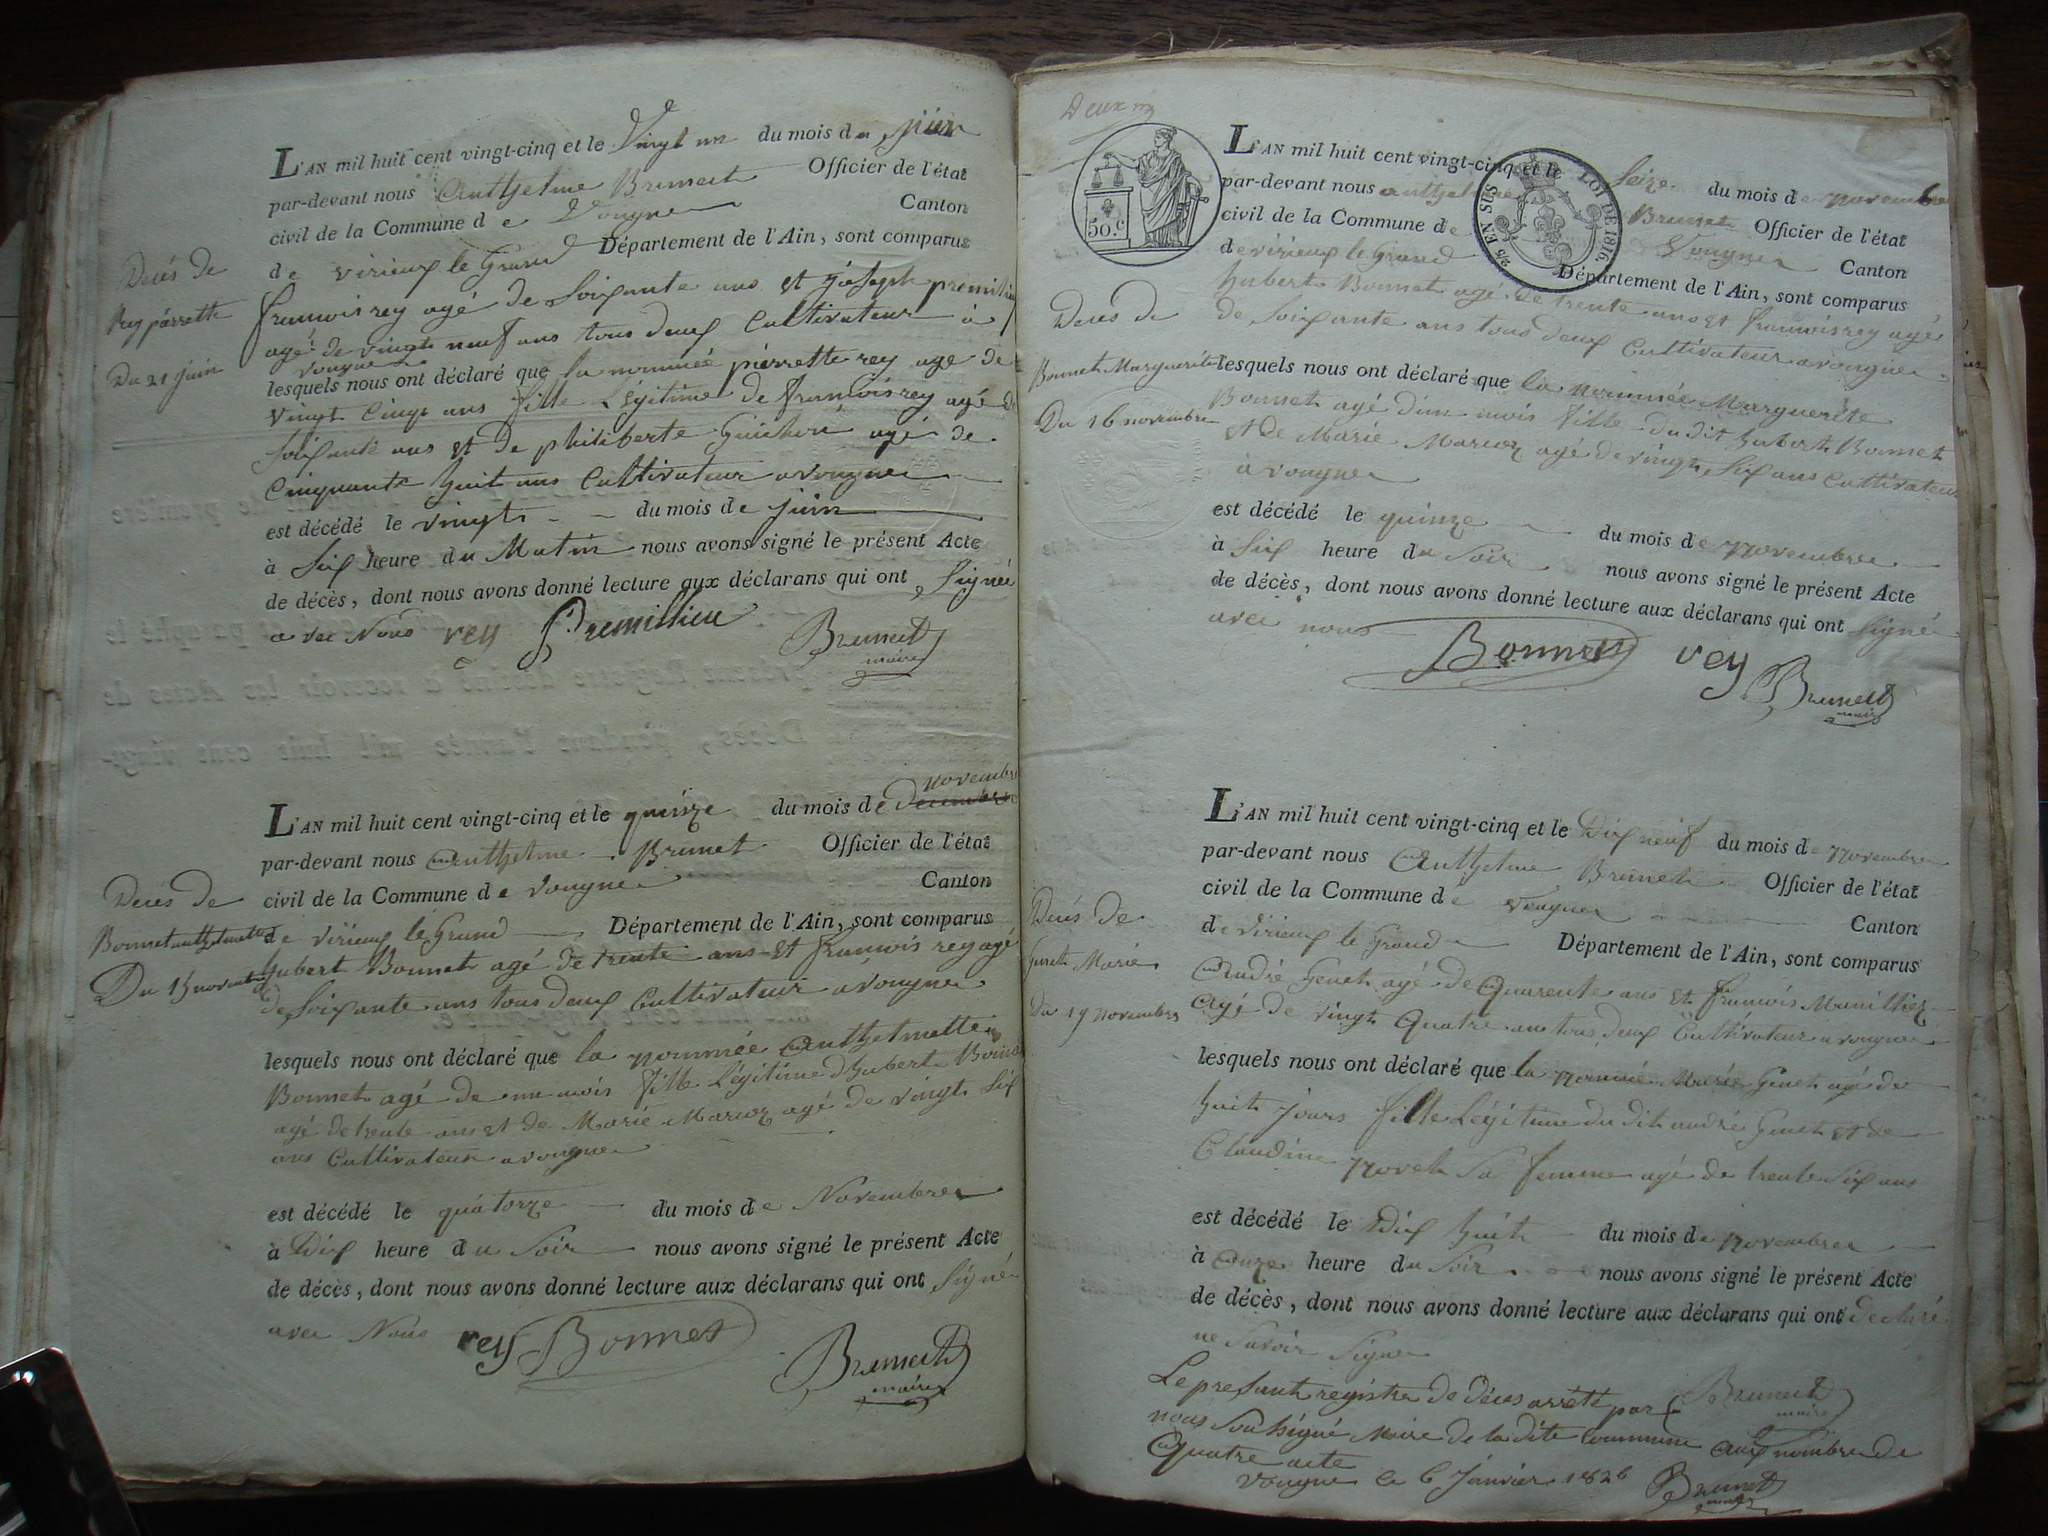 L'AN mil huit cent vingt-cinq et le Vingt un du mois de juin
par-devant nous Anthelme Brunet Officier de l'état
civil de la Commune de Vongne Canton
de virieux le Grand Département de l'Ain, sont comparus
Decés de
Rey pierrette
Du 21 juin
francois rey agé de Soixante ans et joseph premillieu
agé de vingt neuf ans tous deux Cultivateur à
vongne
lesquels nous ont déclaré que la nommée pierrette rey age de
vingt Cinq ans fille Légitime de francois rey agé de
Soixante ans et de philiberte Guichon agé de
Cinquante huit ans Cultivateur a vongne
est décédé le vingt du mois de juin
à Six heure du Matin nous avons signé le présent Acte
de décès, dont nous avons donné lecture aux déclarans qui ont Signée
avec Nous rey Premillieu Brunet
maire
L'AN mil huit cent vingt-cinq et le quinze du mois de decembre
novembre
par-devant nous Anthelme Brunet Officier de l'état
civil de la Commune de vongne Canton
de virieux le Grand Département de l'Ain, sont comparus
Decés de
Bonnet anthelmette
Du 15 novembre
hubert Bonnet agé de trente ans et francois rey agé
de Soixante ans tous deux Cultivateur a vongne
lesquels nous ont déclaré que la nommée Anthelmette
Bonnet agé de un mois fille Légitime d'hubert Bonnet
agé de trente ans et de Marie Marcoz agé de vingt Six
ans Cultivateur a vongne
est décédé le quatorze du mois de Novembre
à Dix heure du Soir nous avons signé le présent Acte
de décès, dont nous avons donné lecture aux déclarans qui ont Signé
avec Nous rey Bonnet Brunet
maire
Deux
50.C
2/5 EN SUS LOI DE 1816.
L'AN mil huit cent vingt-cinq et le Seize du mois de novembre
par-devant nous anthelme Brunet Officier de l'état
civil de la Commune de Vongne Canton
de virieux le Grand Département de l'Ain, sont comparus
Decés de
Bonnet Marguerite
Du 16 novembre
hubert Bonnet agé de trente ans et francois rey agé
de Soixante ans tous deux Cultivateur a vongne
lesquels nous ont déclaré que la nommée Marguerite
Bonnet agé d'un mois fille du dit hubert Bonnet
et de Marie Marcoz agé de vingt Six ans Cultivateur
à vongne
est décédé le quinze du mois de novembre
à Six heure du Soir nous avons signé le présent Acte
de décès, dont nous avons donné lecture aux déclarans qui ont Signé
avec nous Bonnet rey Brunet
maire
L'AN mil huit cent vingt-cinq et le Dix neuf du mois de novembre
par-devant nous Anthelme Brunet Officier de l'état
civil de la Commune de vongne Canton
de virieux le Grand Département de l'Ain, sont comparus
Decés de
Genet Marie
Du 19 novembre
André Genet agé de Quarente ans et francois
Agé de vingt Quatre ans tous deux Cultivateur a vongne
lesquels nous ont déclaré que la nommée Marie Genet agé de
huit jours fille Légitime du dit andré Genet et de
Claudine Sa femme agé de trente Six ans
est décédé le Dix huit du mois de novembre
à onze heure du Soir nous avons signé le présent Acte
de décès, dont nous avons donné lecture aux déclarans qui ont declaré
ne Savoir Signer
Brunet
maire
Le present registre de deces arretté par
nous Soussigné Maire de la dite Commune aux nombre de
Quatre acte
vongne le 6 janvier 1826 Brunet
maire